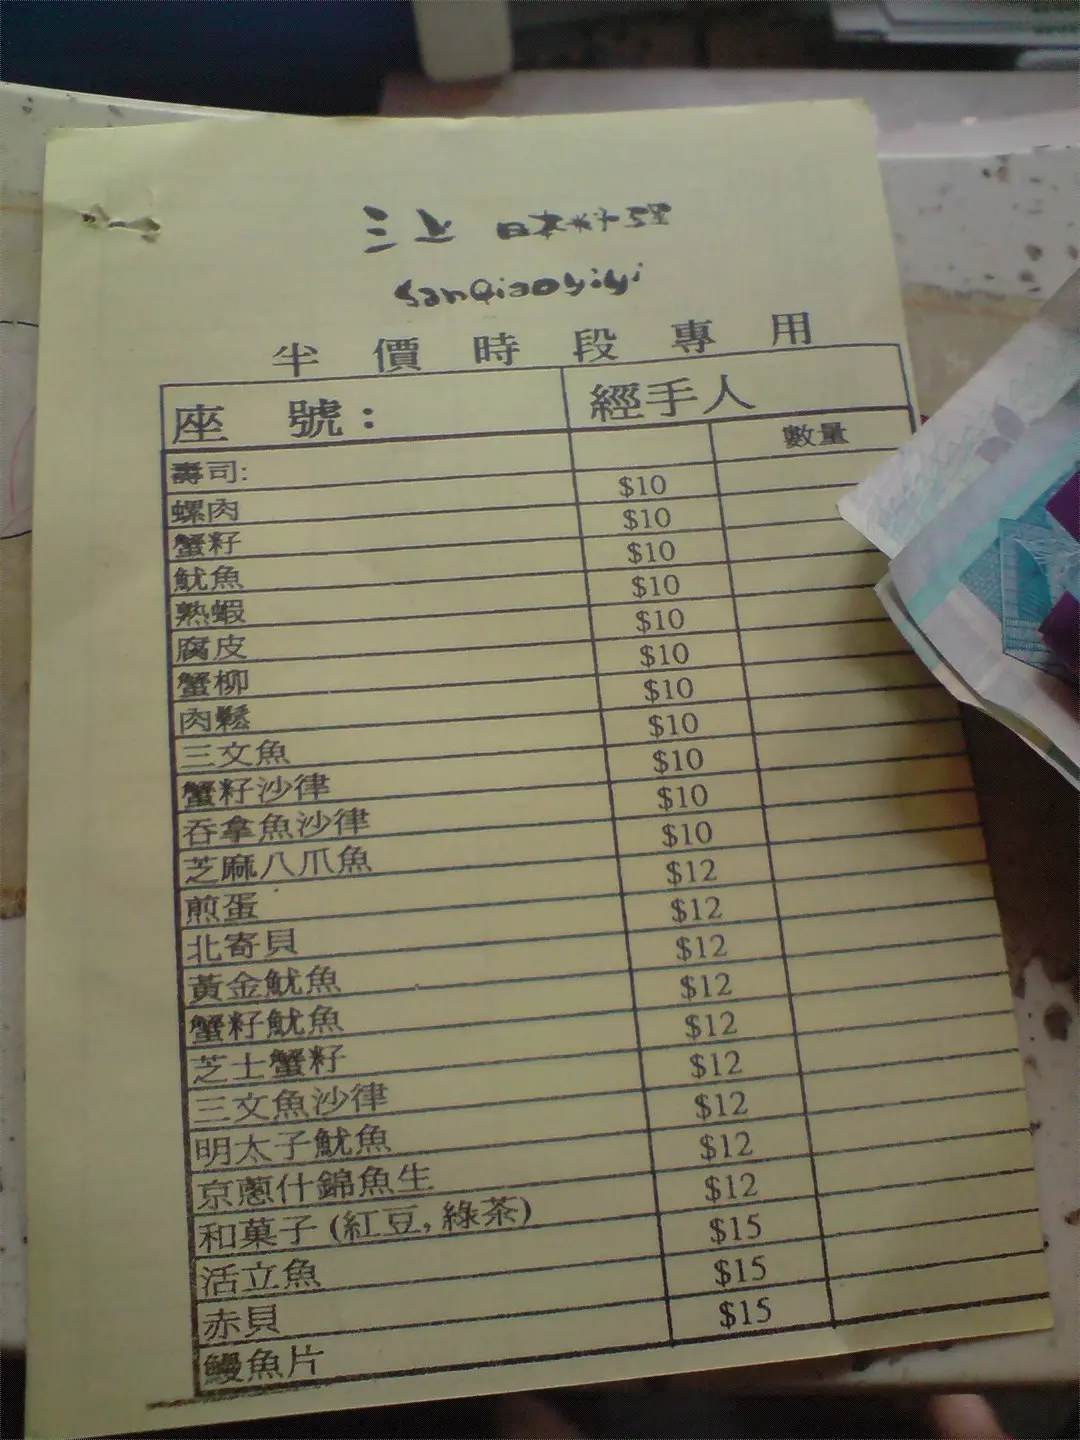 三上 日本料理
SanQiaoyiyi
半價時段專用
座 號: 經手人
壽司: 數量
螺肉 $10
蟹籽 $10
魷魚 $10
熟蝦 $10
腐皮 $10
蟹柳 $10
肉鬆 $10
三文魚 $10
蟹籽沙律 $10
吞拿魚沙律 $10
芝麻八爪魚 $10
煎蛋 $12
北寄貝 $12
黃金魷魚 $12
蟹籽魷魚 $12
芝士蟹籽 $12
三文魚沙律 $12
明太子魷魚 $12
京蔥什錦魚生 $12
和菓子 (紅豆, 綠茶) $12
活立魚 $15
赤貝 $15
鰻魚片 $15